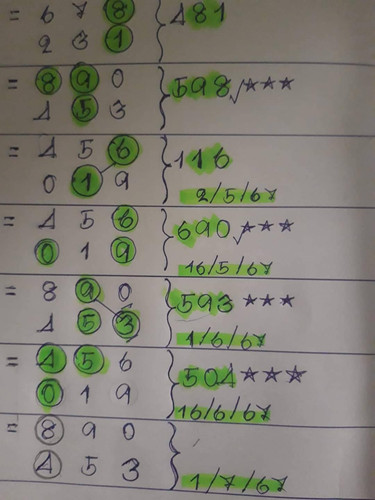 = 6 7 8 } 481
2 3 1
= 8 9 0 } 598 ✓☆☆☆
4 5 3
= 4 5 6 } 116
0 1 9 2/5/67
= 4 5 6 } 690 ✓☆☆☆
0 1 9 16/5/67
= 8 9 0 } 593 ☆☆☆
4 5 3 1/6/67
= 4 5 6 } 504 ☆☆☆
0 1 9 16/6/67
= 8 9 0 }
4 5 3 1/7/67